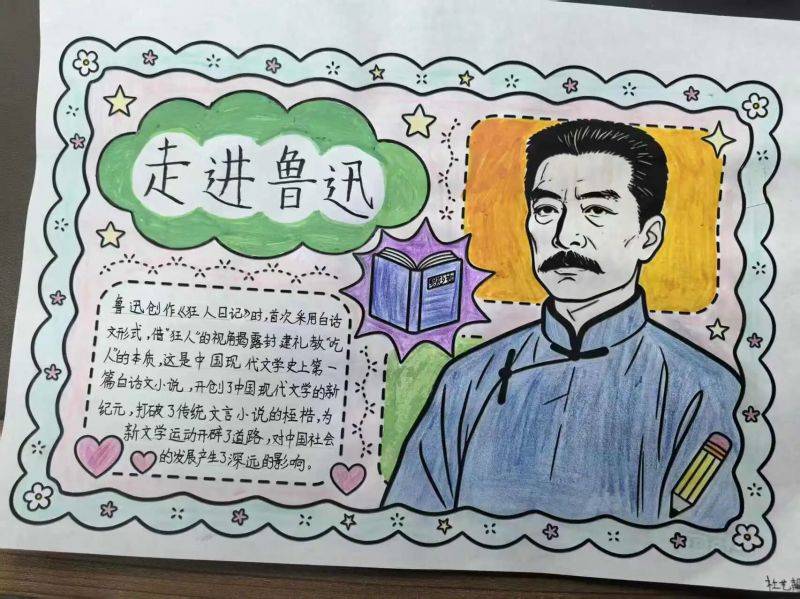 走进鲁迅
鲁迅创作《狂人日记》时,首次采用白话
文形式,借"狂人"的视角揭露封建礼教"吃
人"的本质,这是中国现代文学史上第一
篇白话文小说,开创了中国现代文学的新
纪元,打破了传统文言小说的桎梏,为
新文学运动开辟了道路,对中国社会
的发展产生了深远的影响。